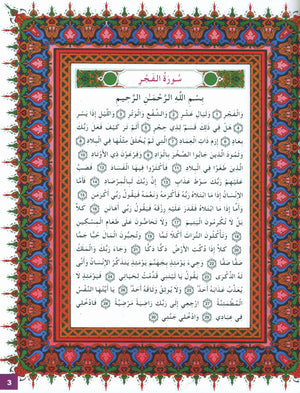 سُورَةُ الفَجْرِ
بِسْمِ اللَّهِ الرَّحْمَٰنِ الرَّحِيمِ
وَالْفَجْرِ ١ وَلَيَالٍ عَشْرٍ ٢ وَالشَّفْعِ وَالْوَتْرِ ٣ وَاللَّيْلِ إِذَا يَسْرِ
٤ هَلْ فِي ذَٰلِكَ قَسَمٌ لِذِي حِجْرٍ ٥ أَلَمْ تَرَ كَيْفَ فَعَلَ رَبُّكَ
بِعَادٍ ٦ إِرَمَ ذَاتِ الْعِمَادِ ٧ الَّتِي لَمْ يُخْلَقْ مِثْلُهَا فِي الْبِلَادِ ٨
وَثَمُودَ الَّذِينَ جَابُوا الصَّخْرَ بِالْوَادِ ٩ وَفِرْعَوْنَ ذِي الْأَوْتَادِ ١٠
الَّذِينَ طَغَوْا فِي الْبِلَادِ ١١ فَأَكْثَرُوا فِيهَا الْفَسَادَ ١٢ فَصَبَّ
عَلَيْهِمْ رَبُّكَ سَوْطَ عَذَابٍ ١٣ إِنَّ رَبَّكَ لَبِالْمِرْصَادِ ١٤ فَأَمَّا
الْإِنْسَانُ إِذَا مَا ابْتَلَاهُ رَبُّهُ فَأَكْرَمَهُ وَنَعَّمَهُ فَيَقُولُ رَبِّي أَكْرَمَنِ ١٥
وَأَمَّا إِذَا مَا ابْتَلَاهُ فَقَدَرَ عَلَيْهِ رِزْقَهُ فَيَقُولُ رَبِّي أَهَانَنِ ١٦ كَلَّا
بَلْ لَا تُكْرِمُونَ الْيَتِيمَ ١٧ وَلَا تَحَاضُّونَ عَلَىٰ طَعَامِ الْمِسْكِينِ
١٨ وَتَأْكُلُونَ التُّرَاثَ أَكْلًا لَمًّا ١٩ وَتُحِبُّونَ الْمَالَ حُبًّا جَمًّا
٢٠ كَلَّا إِذَا دُكَّتِ الْأَرْضُ دَكًّا دَكًّا ٢١ وَجَاءَ رَبُّكَ وَالْمَلَكُ
صَفًّا صَفًّا ٢٢ وَجِيءَ يَوْمَئِذٍ بِجَهَنَّمَ يَوْمَئِذٍ يَتَذَكَّرُ الْإِنْسَانُ وَأَنَّىٰ
لَهُ الذِّكْرَىٰ ٢٣ يَقُولُ يَا لَيْتَنِي قَدَّمْتُ لِحَيَاتِي ٢٤ فَيَوْمَئِذٍ لَا
يُعَذِّبُ عَذَابَهُ أَحَدٌ ٢٥ وَلَا يُوثِقُ وَثَاقَهُ أَحَدٌ ٢٦ يَا أَيَّتُهَا النَّفْسُ
الْمُطْمَئِنَّةُ ٢٧ ارْجِعِي إِلَىٰ رَبِّكِ رَاضِيَةً مَرْضِيَّةً ٢٨ فَادْخُلِي
فِي عِبَادِي ٢٩ وَادْخُلِي جَنَّتِي ٣٠
3